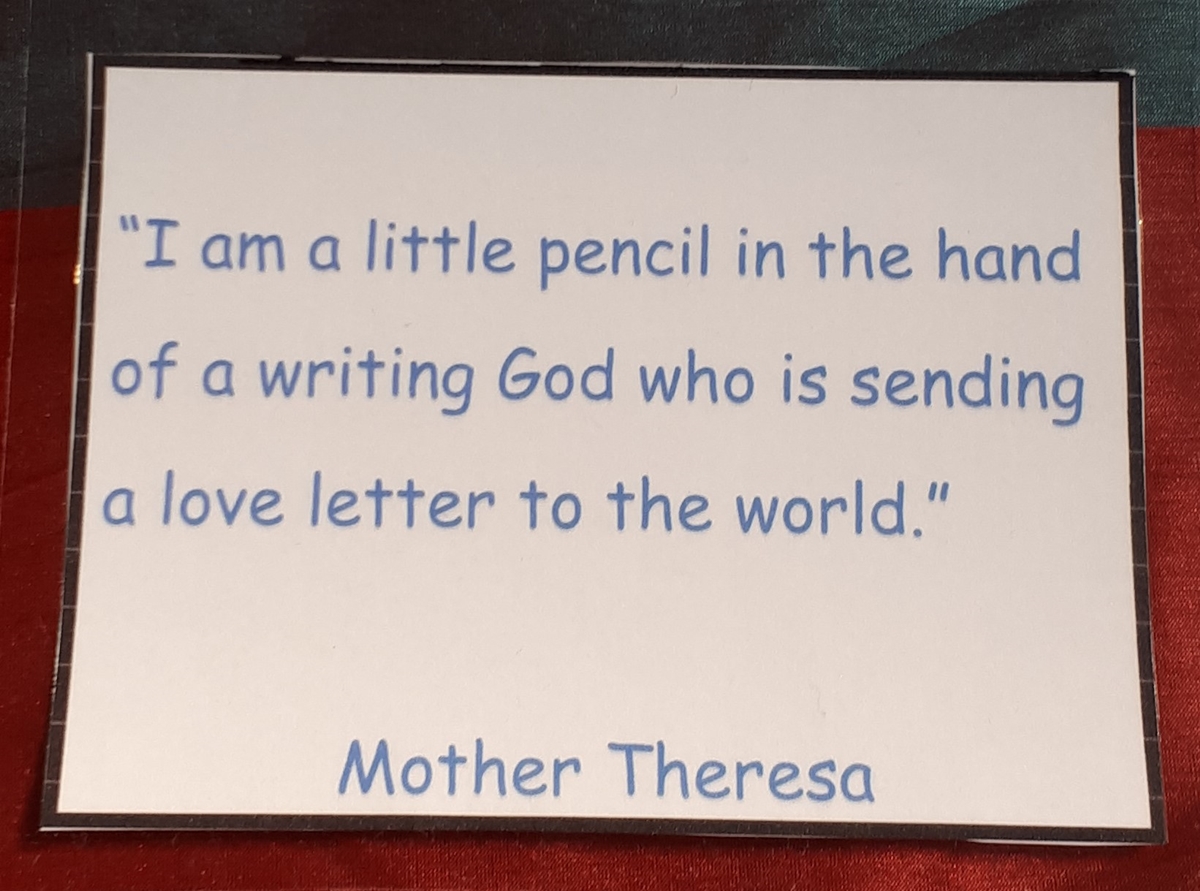 “I am a little pencil in the hand
of a writing God who is sending
a love letter to the world.”
Mother Theresa